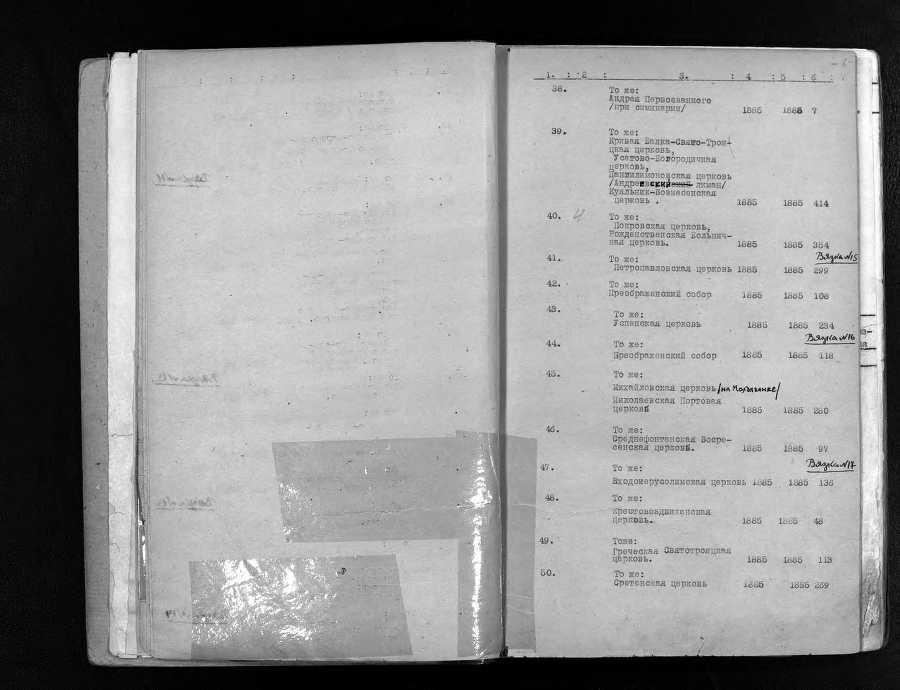 1. : 2 : 3. : 4 : 5 : 6 :
38. То же:
Андрея Первозванного
/при семинарии/ 1885 1885 7
39. То же:
Кривая Балка-Свято-Трои-
цкая церковь,
Усатово-Богородичная
церковь,
Пантилимоновская церковь
/Андреевский лиман/
Куяльник-Вознесенская
церковь . 1885 1885 414
40. 4 То же:
Покровская церковь,
Рождественская Больнич-
ная церковь. 1885 1885 354
Вязка №15
41. То же:
Петропавловская церковь 1885 1885 299
42. То же:
Преображенский собор 1885 1885 108
43. То же:
Успенская церковь 1885 1885 234
Вязка №16
44. То же:
Преображенский собор 1885 1885 118
45. То же:
Михайловская церковь /на Молдаванке/
Николаевская Портовая
церковь 1885 1885 280
46. То же:
Среднефонтанская Воскре-
сенская церковь. 1885 1885 97
Вязка №17
47. То же:
Входоиерусолимская церковь 1885 1885 136
48. То же:
Крестовоздвиженская
церковь. 1885 1885 48
49. Тоже:
Греческая Святотроицкая
церковь. 1885 1885 113
50. То же:
Сретенская церковь 1885 1885 259